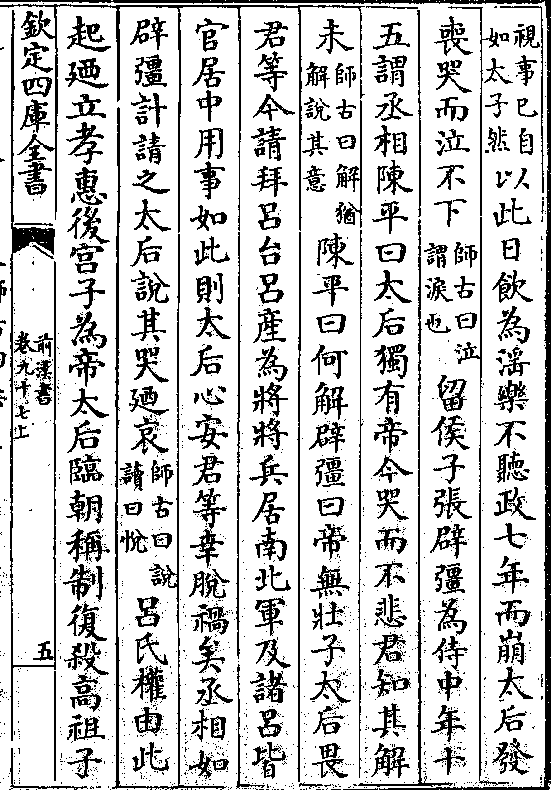 視事已自如太子然以此日飲為滛樂不聽政七年而崩太后發
喪哭而泣不下師古曰泣謂淚也留侯子張辟彊為侍中年十
五謂丞相陳平曰太后獨有帝今哭而不悲君知其解
未師古曰解猶解說其意陳平曰何解辟彊曰帝無壯子太后畏
君等今請拜呂台呂產為將將兵居南北軍及諸呂皆
官居中用事如此則太后心安君等幸脫禍矣丞相如
辟彊計請之太后說其哭廼哀師古曰說讀曰悅呂氏權由此
起廼立孝惠後宮子為帝太后臨朝稱制復殺高祖子
欽定四庫全書
前漢書
卷九十七上
五